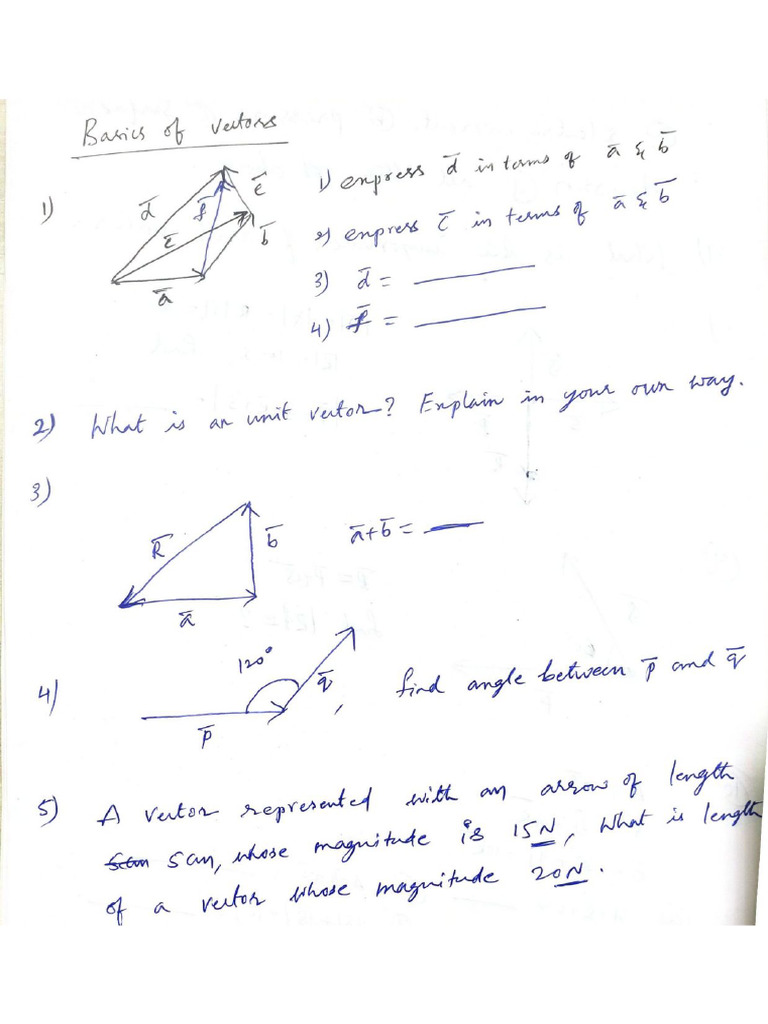 Basics of vectors
1)
d̅
f̅
e̅
c̅
b̅
a̅
1) express d̅ in terms of a̅ & b̅
2) express c̅ in terms of a̅ & b̅
3) d̅ = ______
4) f̅ = ______
2) What is an unit vector? Explain in your own way.
3)
R̅
b̅
a̅
a̅+b̅ = ___
4)
120°
q̅
p̅
, find angle between p̅ and q̅
5) A vector represented with an arrow of length
5cm, whose magnitude is 15N, What is length
of a vector whose magnitude 20N.